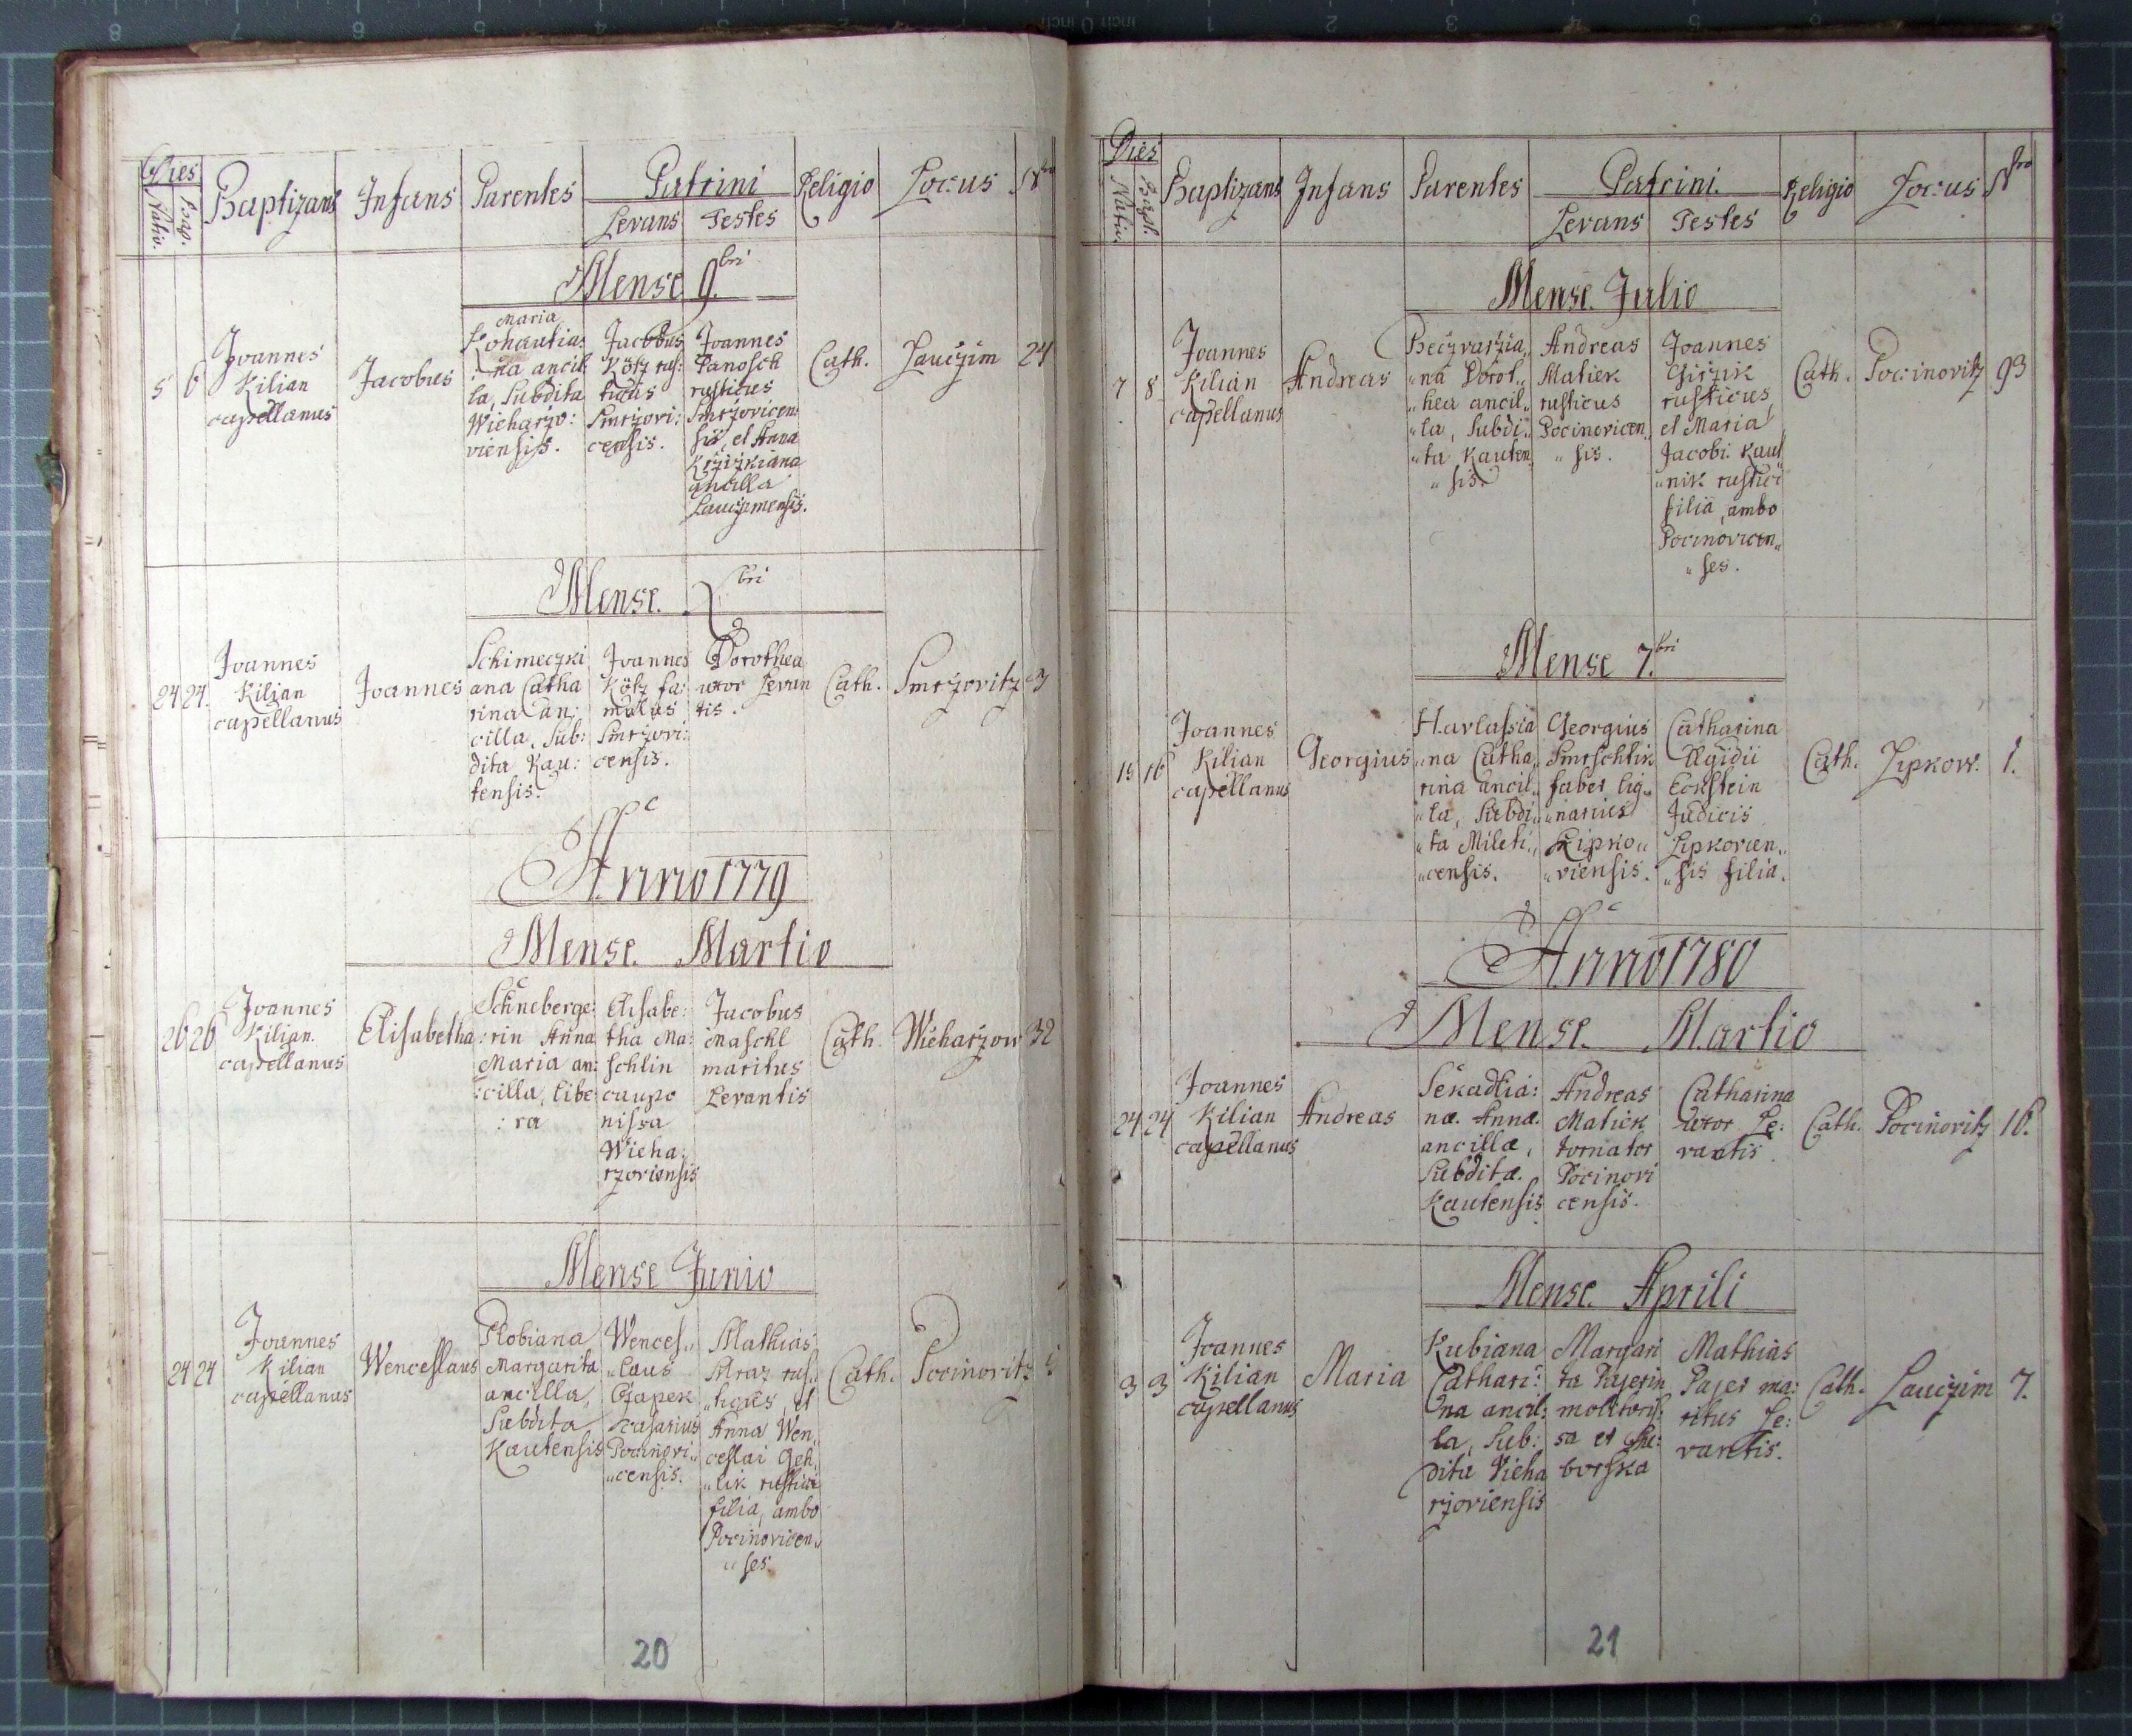 Dies
Nativ.
Bap.
Baptizans
Infans
Parentes
Patrini
Levans
Testes
Religio
Locus
Nro
Mense 9bri
5
6
Joannes
Kilian
capellanus
Jacobus
Maria
Kohautia:
:na ancil
la, Subdita
Wieharzo:
viensis.
Jacobus
Kötz rus:
ticus
Smrzovi:
censis.
Joannes
Panosch
rusticus
Smrzovicen
sis, et Anna
Krzizkiana
ancilla
Lauczimensis.
Cath.
Lauczim
24
Mense Xbri
24
24.
Joannes
Kilian
capellanus
Joannes
Schimeczki
ana Catha
rina an:
cilla, Sub:
dita Kau:
tensis.
Joannes
Kötz fa:
mulus
Smrzovi:
censis.
Dorothea
uxor Levan
tis.
Cath.
Smrzovitz
3
Anno 1779
Mense Martio
26
26
Joannes
Kilian.
capellanus
Elisabetha
Schneberge:
:rin Anna
Maria an:
:cilla, libe
:ra
Elisabe:
tha Ma:
schlin
caupo
nissa
Wieha:
rzoviensis
Jacobus
Maschl
maritus
Levantis
Cath.
Wieharzow
32
Mense Junio
24
24
Joannes
Kilian
capellanus
Wenceslaus
Plobiana
Margarita
ancilla,
Subdita
Kautensis
Wences,,
,,laus
Czapek
casarius
Pocinovi,,
,,censis.
Mathias
Mraz rus,,
,,ticus, et
Anna Wen,,
ceslai
,,lik rustici
filia, ambo
Pocinovicen,,
,,ses.
Cath.
Pocinovitz
20
Dies
Nativ.
Bapt.
Baptizans
Infans
Parentes
Patrini.
Levans
Testes
Religio
Locus
Nro
Mense Julio
7
8
Joannes
Kilian
capellanus
Andreas
Beczvarzia,,
,,na Dorot,,
,,hea ancil,,
,,la, Subdi,,
,,ta Kauten
,,sis.
Andreas
Matiek
rusticus
Pocinovicen,,
,,sis.
Joannes
Girzik
rusticus,
et Maria
Jacobi Kaut
,,nik rustici
filia, ambo
Pocinovicen,,
,,ses.
Cath.
Pocinovitz
93
Mense 7bri
15
16
Joannes
Kilian
capellanus
Georgius
Havlassia
,,na Catha,,
rina ancil,,
,,la, Subdi,,
,,ta Mileti,,
,,censis.
Georgius
Smrschlik
faber lig,,
,,narius
Lipko,,
,,viensis.
Catharina
Ægidii
Eckstein
Judicis
Lipkovien,,
,,sis filia.
Cath.
Lipkow.
1.
Anno 1780
Mense Martio
24
24
Joannes
Kilian
capellanus
Andreas
næ. Annæ.
ancillæ,
Subditæ.
Kautensis
Andreas
Matiek
tornator
Pocinovi
censis.
Catharina
uxor Le:
vantis.
Cath.
Pocinovitz
16.
Mense Aprili
3
3
Joannes
Kilian
capellanus
Maria
Kubiana
Cathari:
na ancil:
la, Sub:
dita Vieha
rzoviensis
Margari
ta Pajerin
molitoris:
sa et
borska
Mathias
Pajer ma:
ritus Le:
vantis.
Cath.
Lauczim
7.
21